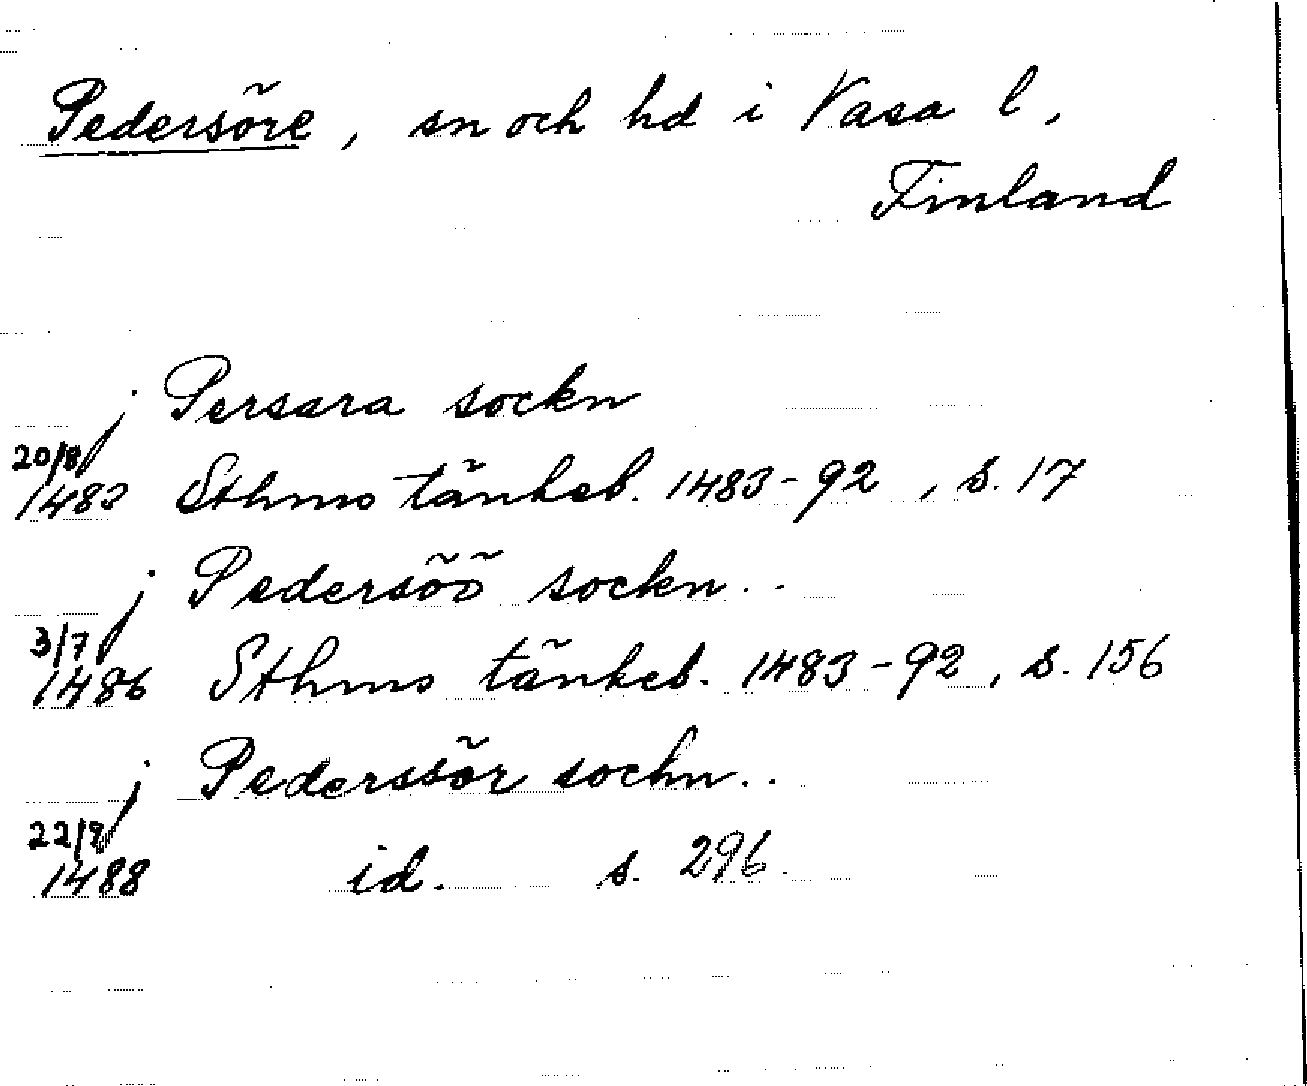 Pedersöre, sn och hd i Vasa l,
Finland
j Persara sockn
20/8
1483 Sthms tänkeb. 1483-92, s. 17
j Pedersöö sockn..
3/7
1486 Sthms tänkeb. 1483-92, s. 156
j Pederssör sochn..
22/9
1488 id. s. 296.